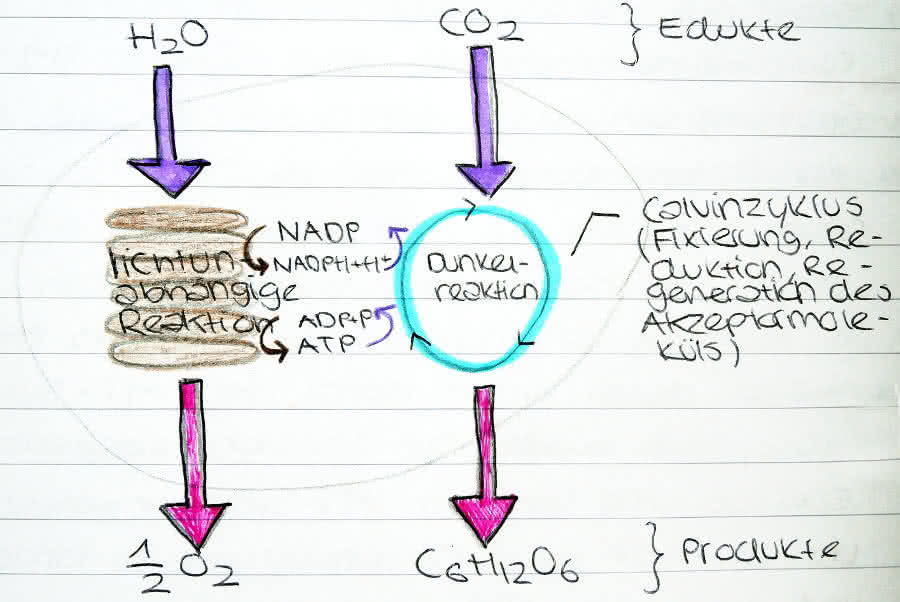 H₂O
CO₂
} Edukte
lichtun-
abhängige
Reaktion
NADP
NADPH+H⁺
ADP+P
ATP
Dunkel-
reaktion
Calvinzyklus
(Fixierung, Re-
duktion, Re-
generation des
Akzeptormole-
küls)
½ O₂
C₆H₁₂O₆
} Produkte